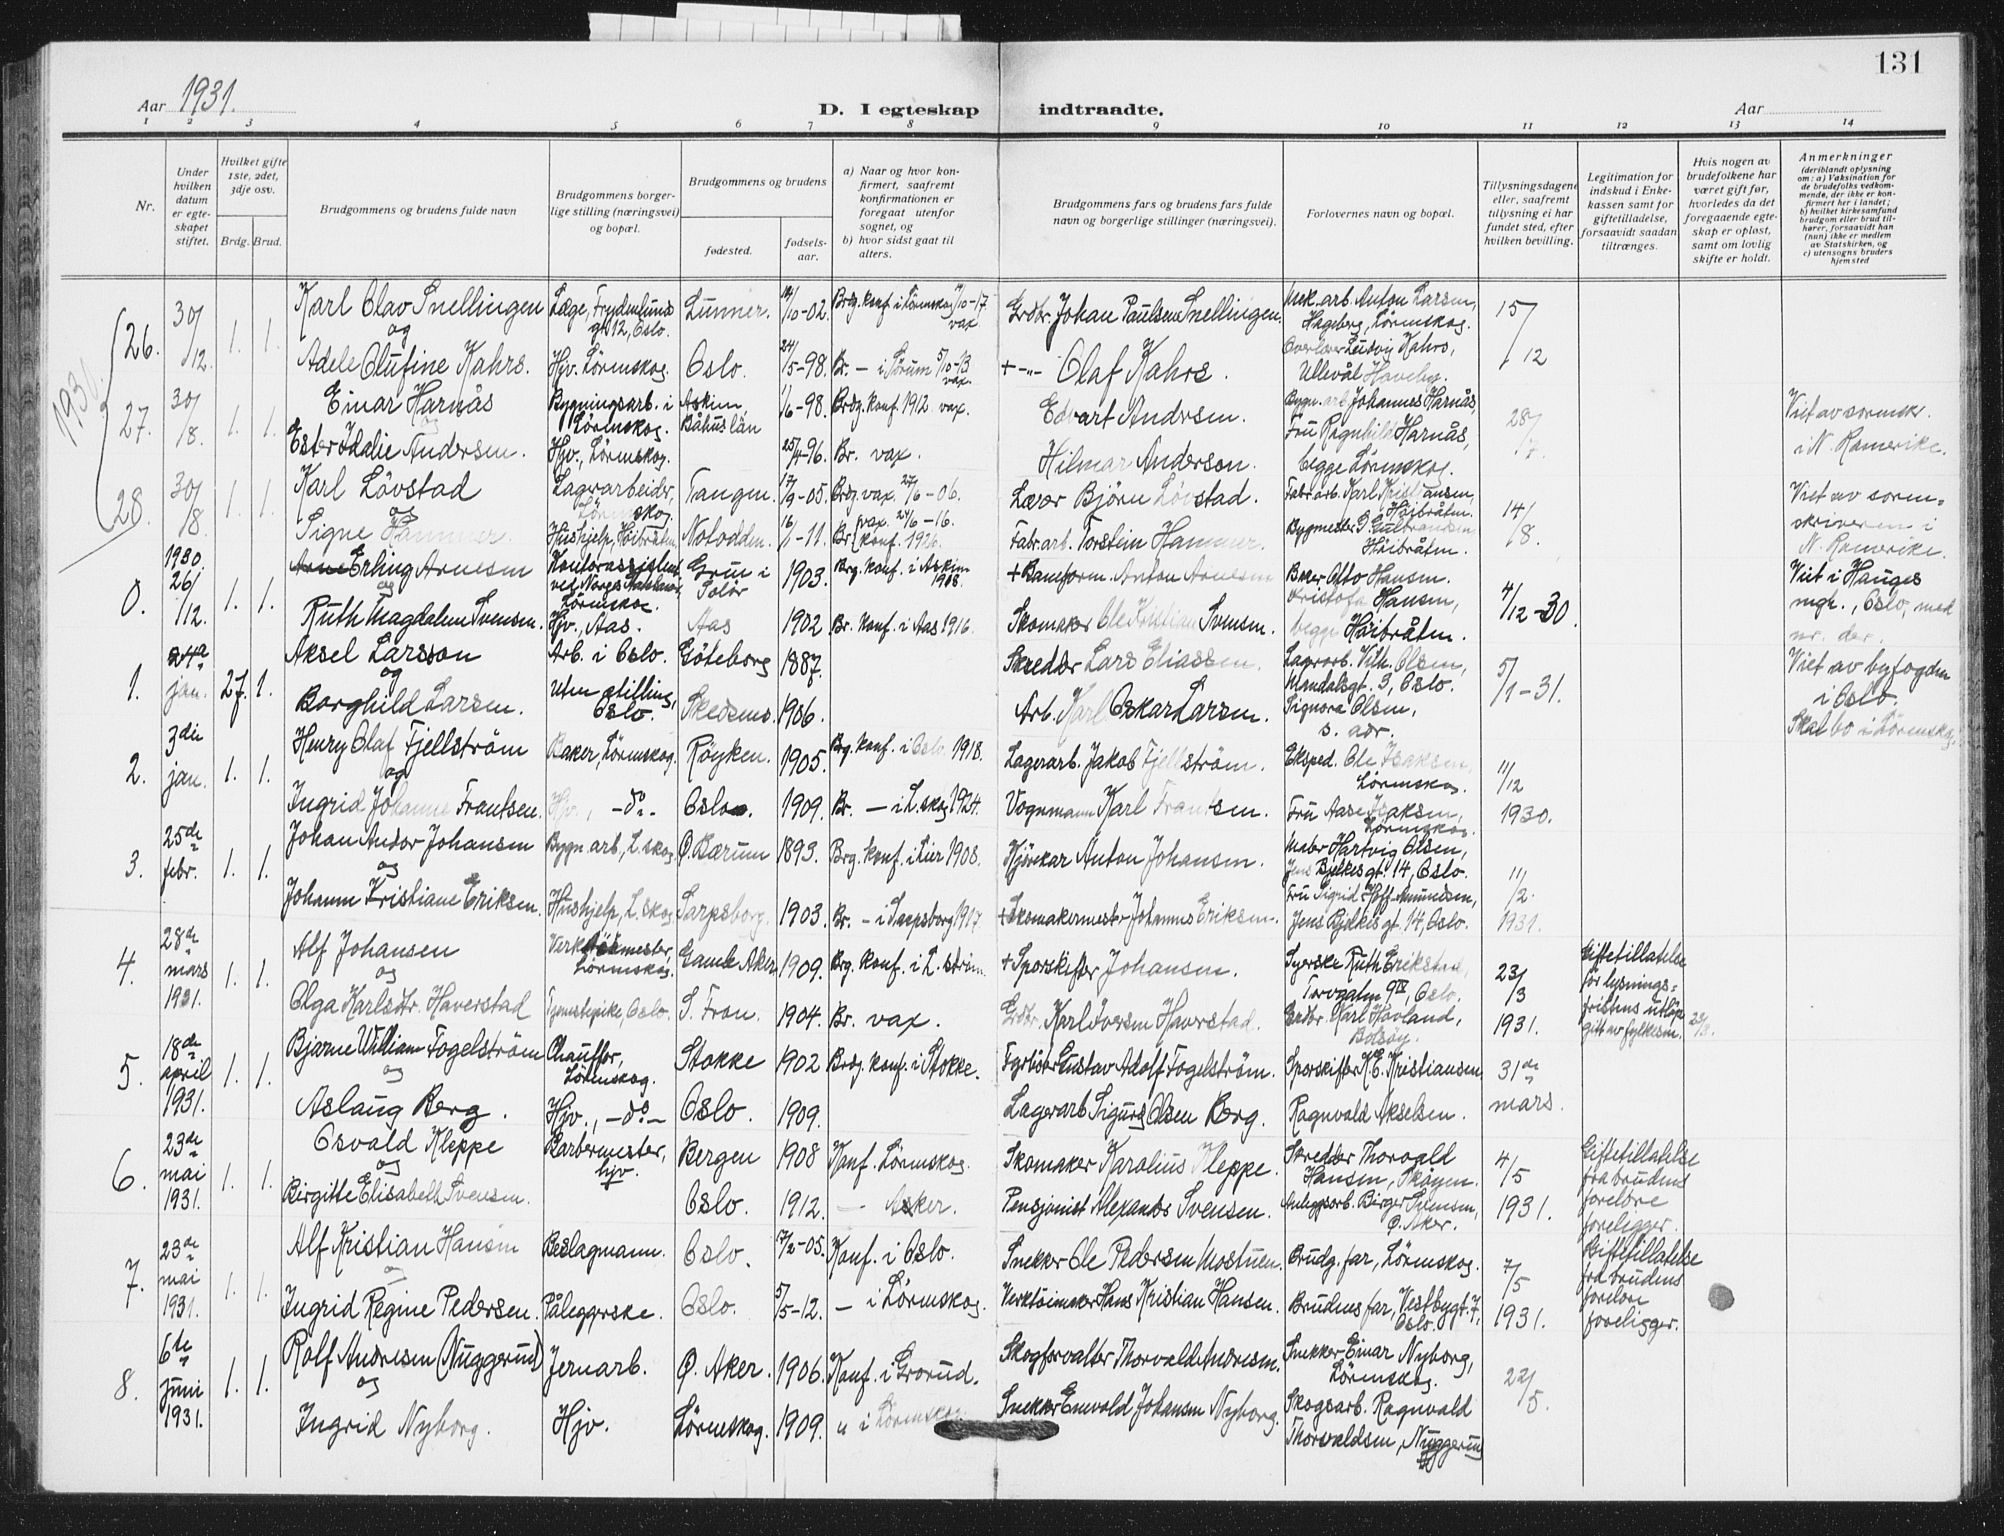 131
Aar 1931.
D. I egteskap indtraadte.
Aar
1 2 3 4 5 6 7 8 9 10 11 12 13 14
Nr.
Under hvilken datum er egteskapet stiftet.
Hvilket gifte 1ste, 2det, 3dje osv.
Brdg. Brud.
Brudgommens og brudens fulde navn
Brudgommens borgerlige stilling (næringsvei) og bopæl.
Brudgommens og brudens
fødested.
fødselsaar.
a) Naar og hvor konfirmert, saafremt konfirmationen er foregaat utenfor sognet, og
b) hvor sidst gaat til alters.
Brudgommens fars og brudens fars fulde navn og borgerlige stillinger (næringsvei).
Forlovernes navn og bopæl.
Tillysningsdagene eller, saafremt tillysning ei har fundet sted, efter hvilken bevilling.
Legitimation for indskud i Enkekassen samt for giftetilladelse, forsaavidt saadan tiltrænges.
Hvis nogen av brudefolkene har været gift før, hvorledes da det foregaaende egteskap er opløst, samt om lovlig skifte er holdt.
Anmerkninger
(deriblandt oplysning om: a) Vaksination for de brudefolks vedkommende, der ikke er konfirmert her i landet;
b) hvilket kirkesamfund brudgom eller brud tilhører, forsaavidt han (hun) ikke er medlem av Statskirken, og
c) utensogns bruders hjemsted
26. 30/12. 1. 1. Karl Olav Snellingen Læge, Frydenlundsgt 12, Oslo. Lunner. /10-02. Brdg. konf. i Lørenskog /10-17. vax. Grdbr. Johan Paulsen Snellingen. Mek. arb. Anton Larsen, Hageberg, Lørenskog. 15/12
og
Adele Olufine Kahrs. Hjv. Lørenskog. Oslo. 24/5-98. Br. — i Sørum 5/10-13 vax. + -"- Olaf Kahrs. Overlærer Ludvig Kahrs, Ullevål Haveby.
27. 30/8. 1. 1. Einar Harnås Bygningsarb. i Lørenskog. Askim, /6-98. Brdg. konf. 1912. vax. Edvart Andersen. Bygn. arb. Johannes Harnås, 28/7. Viet av sorensk. i N. Romerike.
og
Ester Idalie Andersen. Hjv., Lørenskog. Båhuslän 25/4-96. Br. vax. Hilmar Anderson. Fru Ragnhild Harnås, begge Lørenskog.
28. 30/8. 1. 1. Karl Lövstad Lagerarbeider, Lørenskog. Tangen. 17/9-05. Brdg. vax. 27/6-06. Lærer Björn Lövstad. Fabr. arb. Karl Kristiansen, Höibråten. 14/8. Viet av sorenskriveren i N. Romerike.
og
Signe Hammer. Hushjelp, Höibråten. Notodden. 16/1-11. Br. vax. 24/6-16. konf. 1926. Fabr. arb. Torstein Hammer. Bygmester G. Gulbrandsen Höibråten.
0. 1930. 26/12. 1. 1. Arne Erling Arnesen Kontorassistent Lørenskog. Grue i Solör 1903. Brg. konf. i Askim 1918. + Baneform. Anton Arnesen Baker Otto Hansen. 4/12-30. Viet i Hauges mgh., Oslo, med nr. der.
og
Ruth Magdalene Svensen. Hjv., Aas. Aas 1902 Br. konf. i Aas 1916. Skomaker Ole Kristian Svensen. Kristofa Hansen, begge Höibråten.
1. 2den jan. 27. 1. Aksel Larsson Arb. i Oslo. Göteborg 1887. Skredder Lars Eliassen. Lagerarb. Vilh. Olsen, Mandalsgt. 3, Oslo. 5/1-31. Viet av byfogden i Oslo. Skal bo i Lörenskog.
og
Borghild Larsen. Uten stilling, Oslo. Skedsmo. 1906. Arb. Karl Oskar Larsen. Signora Olsen, s. adr.
2. 3die jan. 1. 1. Henry Olaf Fjellström Baker, Lörenskog. Röyken. 1905. Brg. konf. i Oslo 1918. Lagerarb. Jakob Fjellström. Eksped. Ole Isaksen, Lörenskog. 11/12 1930.
og
Ingrid Johanne Frantsen. Hjv., -do- Oslo. 1909. Br. — i L. skog 1924. Vognmann Karl Frantsen. Fru Aase Isaksen, Lörenskog.
3. 25de febr. 1. 1. Johan Andor Johansen Bygn. arb, L. skog. Ø. Bærum 1893. Brg. konf. i Lier 1908. Hjörekar Anton Johansen. Maler Hartvig Olsen, Jens Bjelkes gt. 14, Oslo. 11/2. 1931.
og
Johanne Kristiane Eriksen. Hushjelp, L. skog Sarpsborg. 1903. Br. — i Sarpsborg 1917. + Skomakermester Johannes Eriksen. Fru Sigrid Hoff-Amundsen, Jens Bjelkes gt. 14, Oslo.
4. 28de mars 1931. 1. 1. Alf Johansen Verktöimester, Lörenskog. Gamle Aker. 1909. Brg. konf. i L. ström. + Sporskifter Johansen. Syerske Ruth Erikstad, Torvgaten 9 IV, Oslo. 23/3 1931. Giftetillatelse för lysningsfristens utlöp gitt av fylkesm. 23/3.
og
Olga Karlsdtr. Haverstad Tjenestepike, Oslo. S. Fron. 1904. Br. vax. Grdbr. Karl Iversen Haverstad. Grdbr. Karl Hovland, Bolsöy.
5. 18de april 1931. 1. 1. Bjarne William Fogelström Chauffør, Lörenskog. Stokke 1902 Brdg. konf. i Stokke. Fyrböter Gustav Adolf Fogelström. Sporskifter K. E. Kristiansen 31de mars.
og
Aslaug Berg. Hjv., -do- Oslo. 1909. Lagerarb Sigurd Olsen Berg. Ragnvald Akselsen.
6. 23de mai 1931. 1. 1. Osvald Kleppe Barbermester, hjv. Bergen 1908 Konf. Lörenskog. Skomaker Karolius Kleppe. Skredder Thorvald Hansen, Skøyen. 4/5 1931. Giftetillatelse fra brudens forelдre foreligger.
og
Birgitte Elisabeth Svensen. Oslo. 1912. — Asker. Pensjonist Alexander Svensen. Anleggsarb. Birger Svensen, Ø. Aker.
7. 23de mai 1931. 1. 1. Alf Kristian Hansen Beslagmann. Oslo. 17/2-05. Konf. i Oslo. Snekker Ole Pedersen Mostuen. Brudg. far, Lörenskog. 7/5 1931. Giftetillatelse fra brudens forelдre foreligger.
og
Ingrid Regine Pedersen. Påleggerske. Oslo. 5/5-12. — i Lörenskog. Verktöimaker Hans Kristian Hansen. Brudens far, Vestbygt. 7, Oslo.
8. 6te juni 1931. 1. 1. Rolf Andresen (Nuggerud) Jernarb. Ø. Aker. 1906. Konf. i Grorud. Skogforvalter Thorvald Andresen. Snekker Einar Nyborg, Lörenskog. 22/5.
og
Ingrid Nyborg. Hjv. Lörenskog. 1909. " i Lörenskog. Snekker Enevald Johansen Nyborg. Skogsarb. Ragnvald Thorvaldsen, Nuggerud